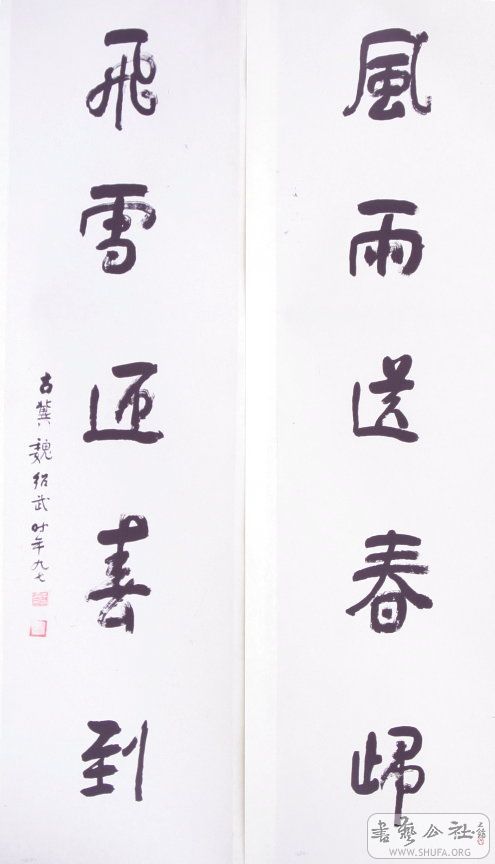 風雨送春歸
飛雪迎春到
古冀魏紹武时年九七
書藝公社
WWW.SHUFA.ORG